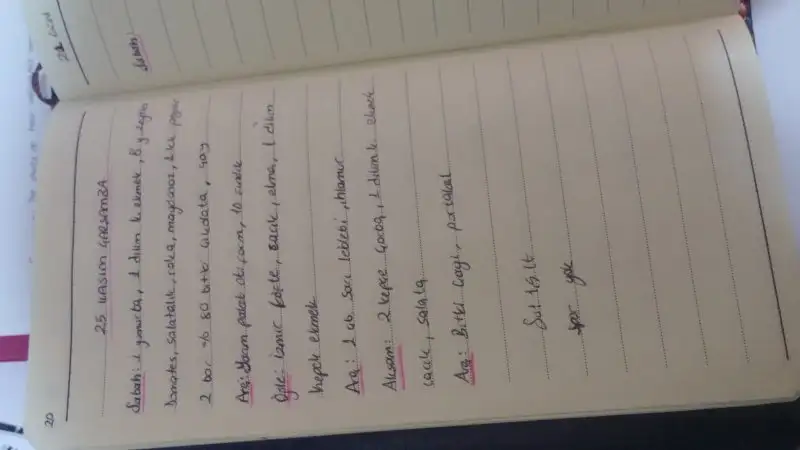 20
25 KASIM ÇARŞAMBA
Sabah: 1 yumurta, 1 dilim k. ekmek, 8 y. zeytin
Domates, salatalık, roka, maydanoz, 1 kk peynir
2 bar % 80 bitter çikolata, çay
Ara: Yarım paket 10 fındık
Öğle: Izmir köfte, cacık, elma, 1 dilim
kepek ekmek
Ara: 1 ab. sarı leblebi, ıhlamur
Akşam: 2 kepçe çorba, 1 dilim k ekmek
cacık, salata
Ara: Bitki çayı, portakal
Su: 1,5 lt
spor yok
Sabah: